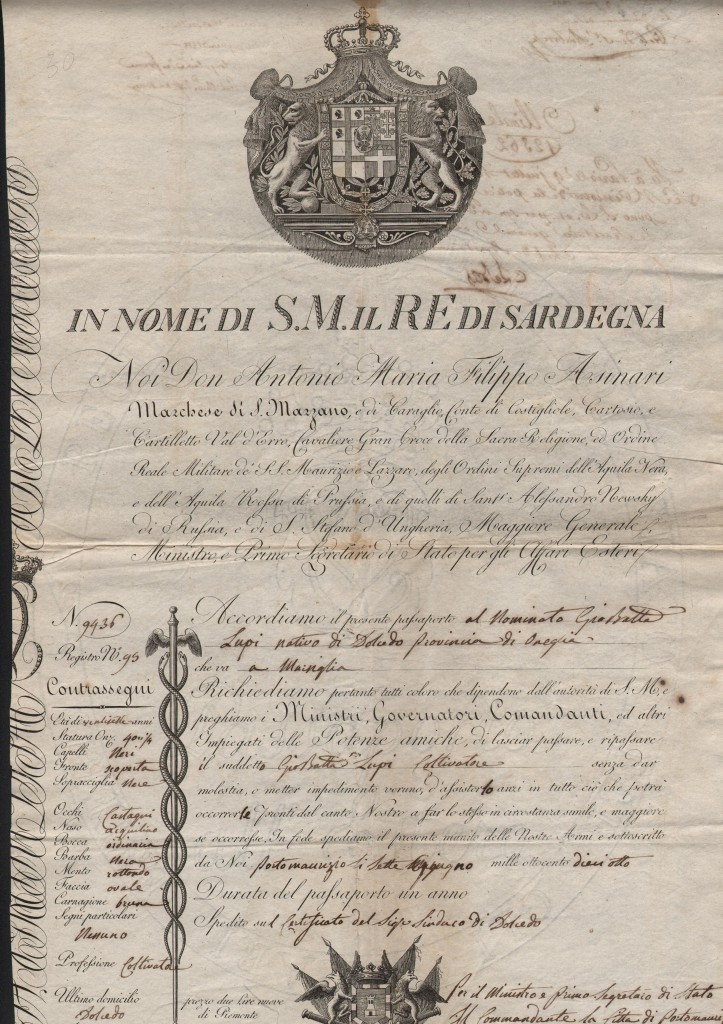 20
IN NOME DI S.M. IL RE DI SARDEGNA
Noi Don Antonio Maria Filippo Asinari
Marchese di S. Marzano, e di Caraglio, Conte di Costigliole, Cartosio, e
Cartilletto Val d'Erro, Cavaliere Gran Croce della Sacra Religione, ed Ordine
Reale Militare de' S.S. Maurizio e Lazzaro, degli Ordini Supremi dell'Aquila Nera,
e dell'Aquila Rossa di Prussia, e di quelli di Sant' Alessandro Newsky
di Russia, e di S. Stefano d'Ungheria, Maggiore Generale,
Ministro, e Primo Segretario di Stato per gli Affari Esteri
N. 9936
Registro N. 93
Contrassegni
Età di ventisette anni
Statura On. 40 1/4
Capelli Neri
Fronte scoperta
Sopracciglia Nere
Occhi Castagni
Naso aquilino
Bocca ordinaria
Barba Nera
Mento rottondo
Faccia ovale
Carnagione bruna
Segni particolari
Nessuno
Professione Coltivat
Ultimo domicilio
Dolcedo
Accordiamo il presente passaporto al Nominato Gio Batta
Lupi nativo di Dolcedo Provincia di Oneglia
che va a Marsiglia
Richiediamo pertanto tutti coloro che dipendono dall'autorità di S.M., e
preghiamo i Ministri, Governatori, Comandanti, ed altri
Impiegati delle Potenze amiche, di lasciar passare, e ripassare
il suddetto Gio Batta Lupi Coltivatore senza dar
molestia, e metter impedimento veruno, d'assisterlo anzi in tutto ciò che potrà
occorrerle Pronti dal canto Nostro a far lo stesso in circostanza simile, e maggiore
se occorresse. In fede spediamo il presente munito delle Nostre Armi e sottoscritto
da Noi Portomaurizio li Sette giugno mille ottocento dieciotto
Durata del passaporto in anno
Spedito sul Certificato del Sigr Sindaco di Dolcedo
prezzo due lire nuove
di Piemonte
Per il Ministro e primo Segretaio di Stato
Il Commandante la Città di Portomau